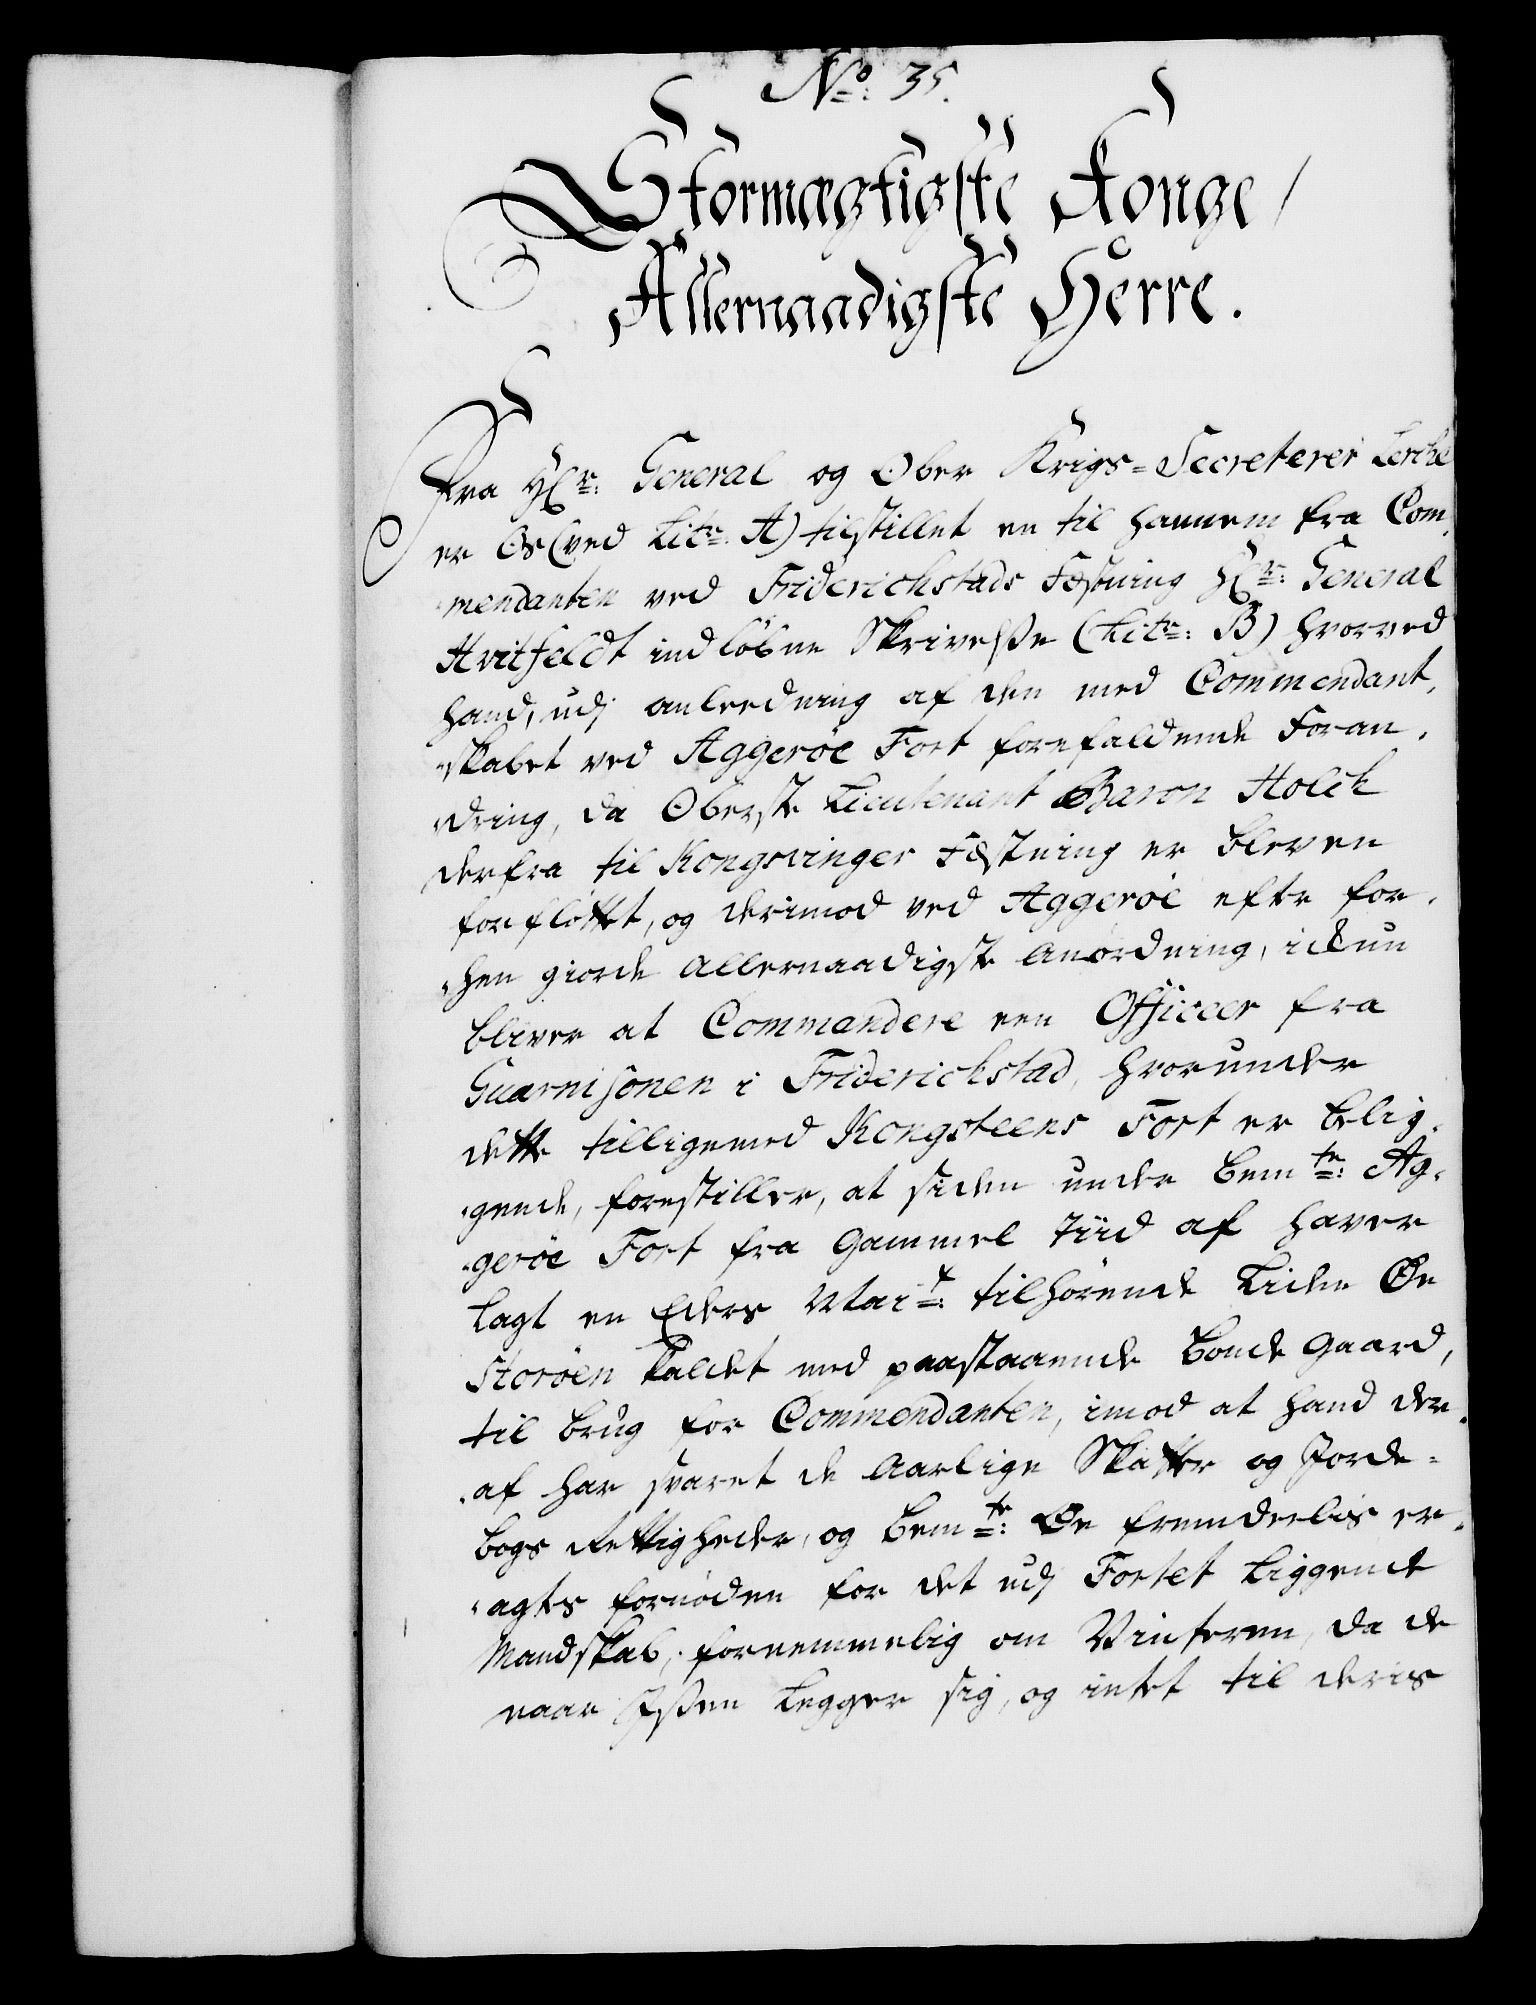 No: 35.
Stormægtigste Konge/
Allernaadigste Herre.
Fra Hr: General og Ober Krigs-Secreterer Lerche
er Os (ved Litr: A) tilstillet en til hannem fra Com-
-mendanten ved Friderichstads Fæstning Hr: General
Hvitfeldt indløbne Skrivelsse (Litr: B) hvorved
hand, udj anleedning af den med Commendant-
-skabet ved Aggerøe Fort forefaldende Foran-
-dring, da Oberste Lieutenant Baron Holck
derfra til Kongsvinger Fæstning er bleven
forfløttet, og derimod ved Aggerøe efter for-
-hen giorde Allernaadigste Anordning, ickun
bliver at Commandere een Officeer fra
Guarnisonen i Friderichstad, hvorunder
dette tilligemed Kongsteens Fort er belig-
-gende, forestiller, at siden under bemte: Ag-
-gerøe Fort fra Gammel Tiid af haver
Lagt en Eders Maits: tilhørende Liden Øe
Storøen kaldet med paastaaende Bonde Gaard,
til brug for Commendanten, imod at hand der-
-af har svaret de Aarlige Skatter og Jorde-
bogs Rettigheder, og bemte: Øe fremdeelis er-
-agtes fornøden for det udj Fortet Liggende
Mandskab, fornemmelig om Vinteren, da de
naar Jssen Legger sig, og intet til deris